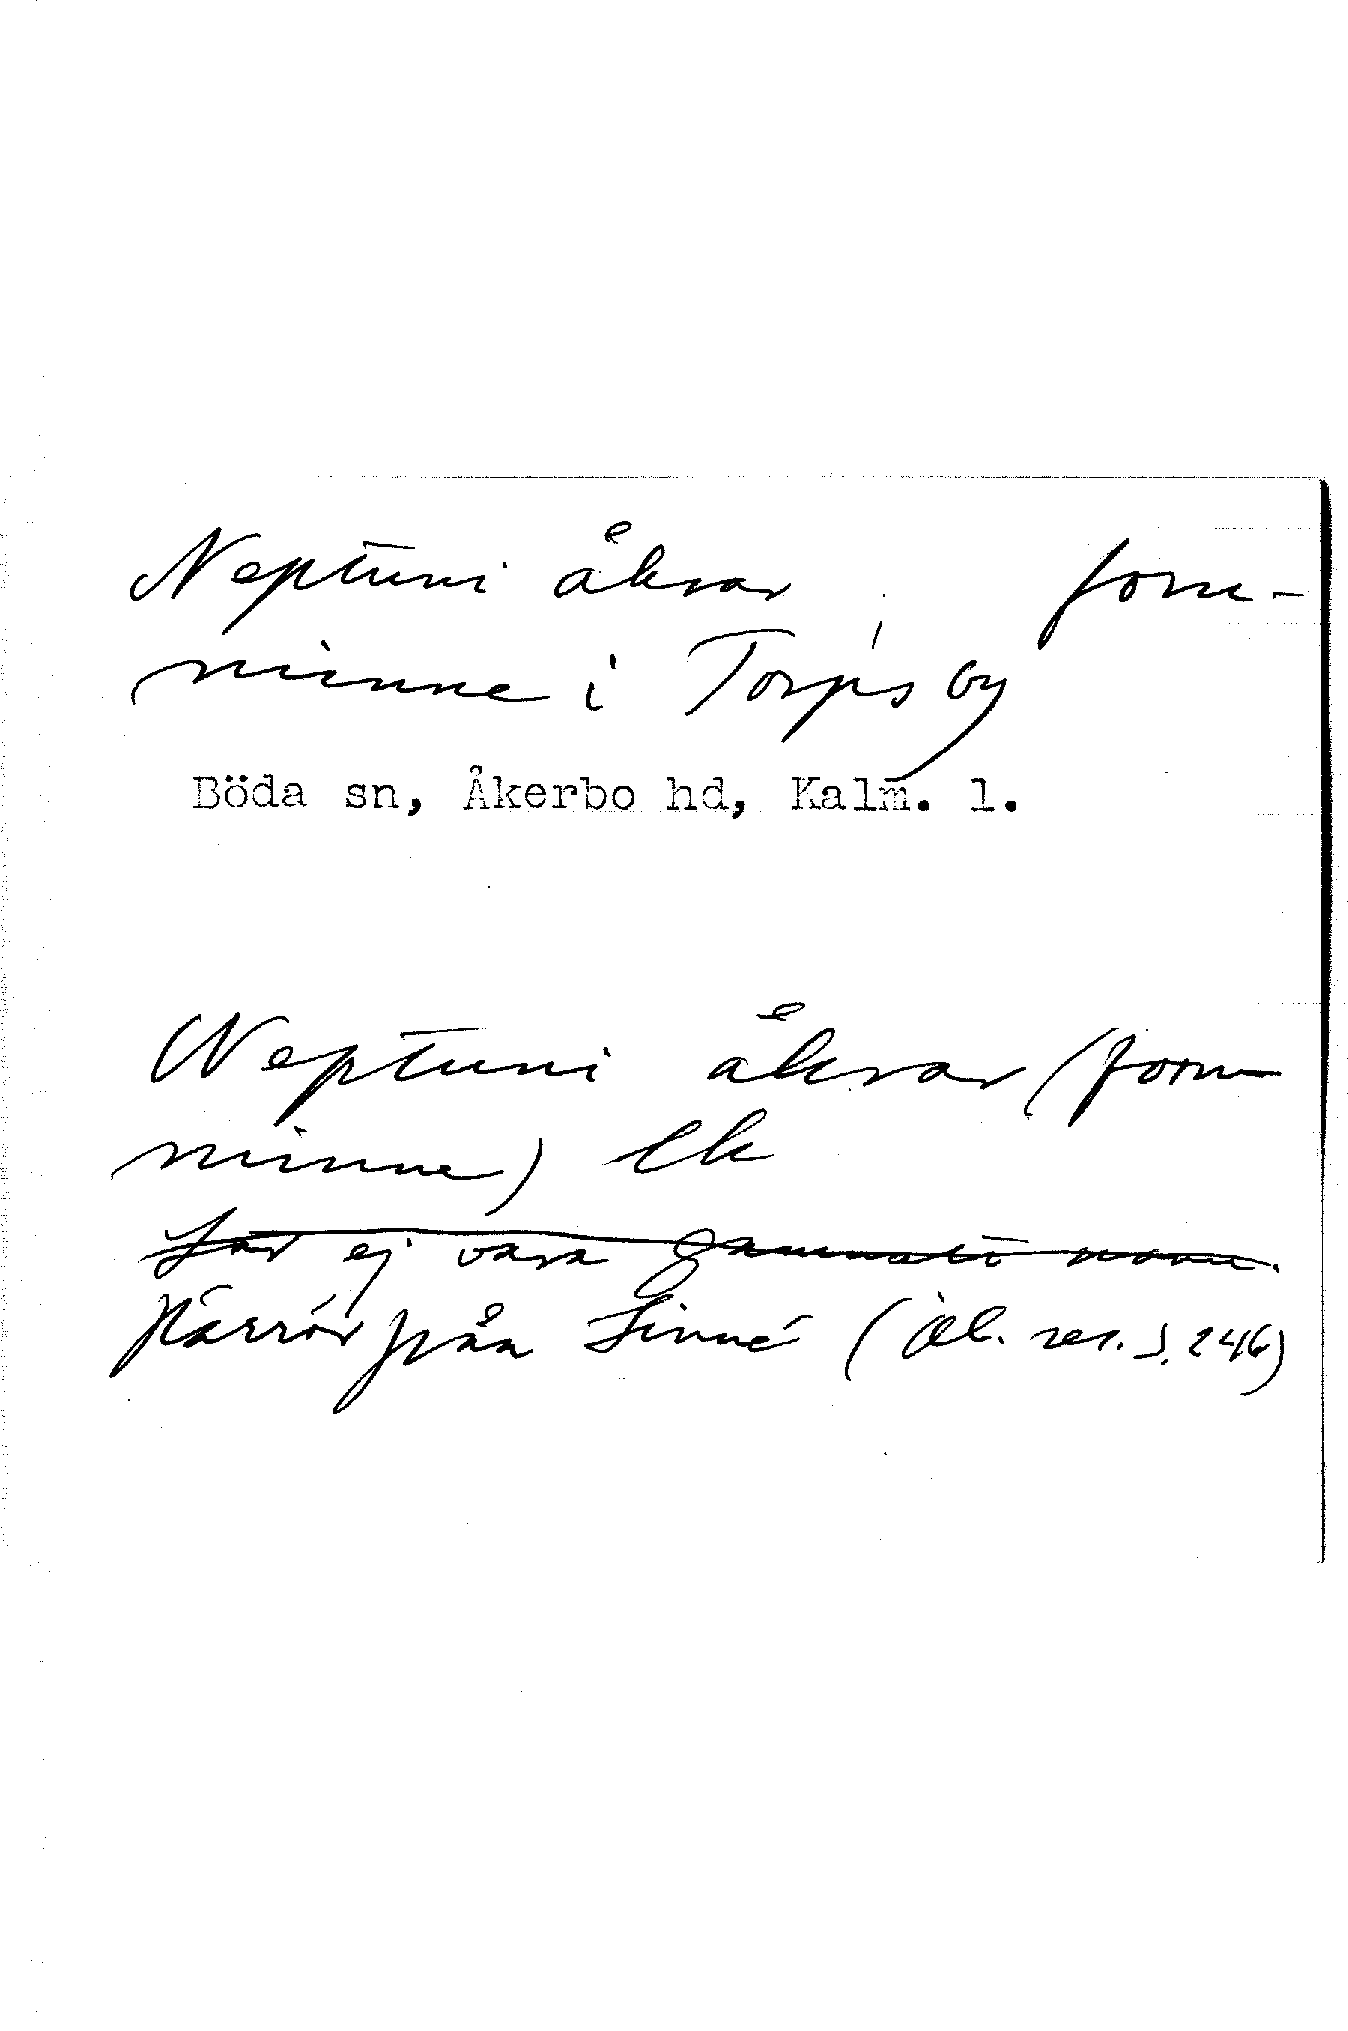 Neptuni åkrar forn-
minne i Torps by
Böda sn, Åkerbo hd, Kalm. l.
Neptuni åkrar (forn-
minne) Ek
Lär ej vara gammalt namn.
Härrör från Linné (Öl. res. s. 246)